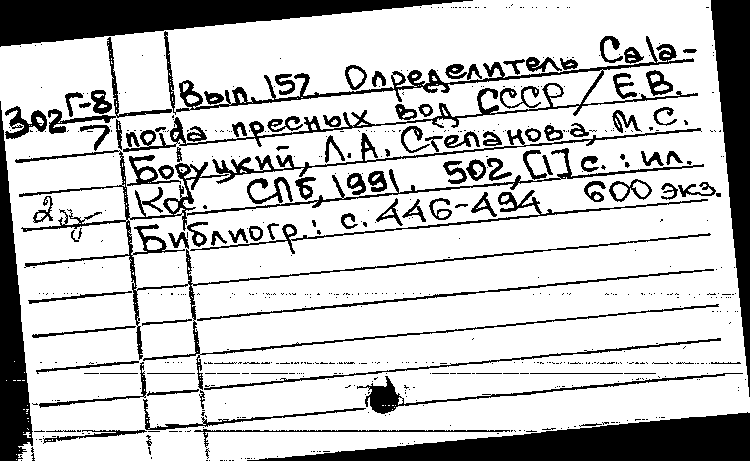 Вып. 157. Определитель Cala-
302 Г-8/7 noida пресных вод СССР / Е.В.
Боруцкий, Л.А. Степанова, М.С.
Кос. СПб, 1991. 502, [1] с. : ил.
2 эз
Библиогр.: с. 446-494. 600 экз.